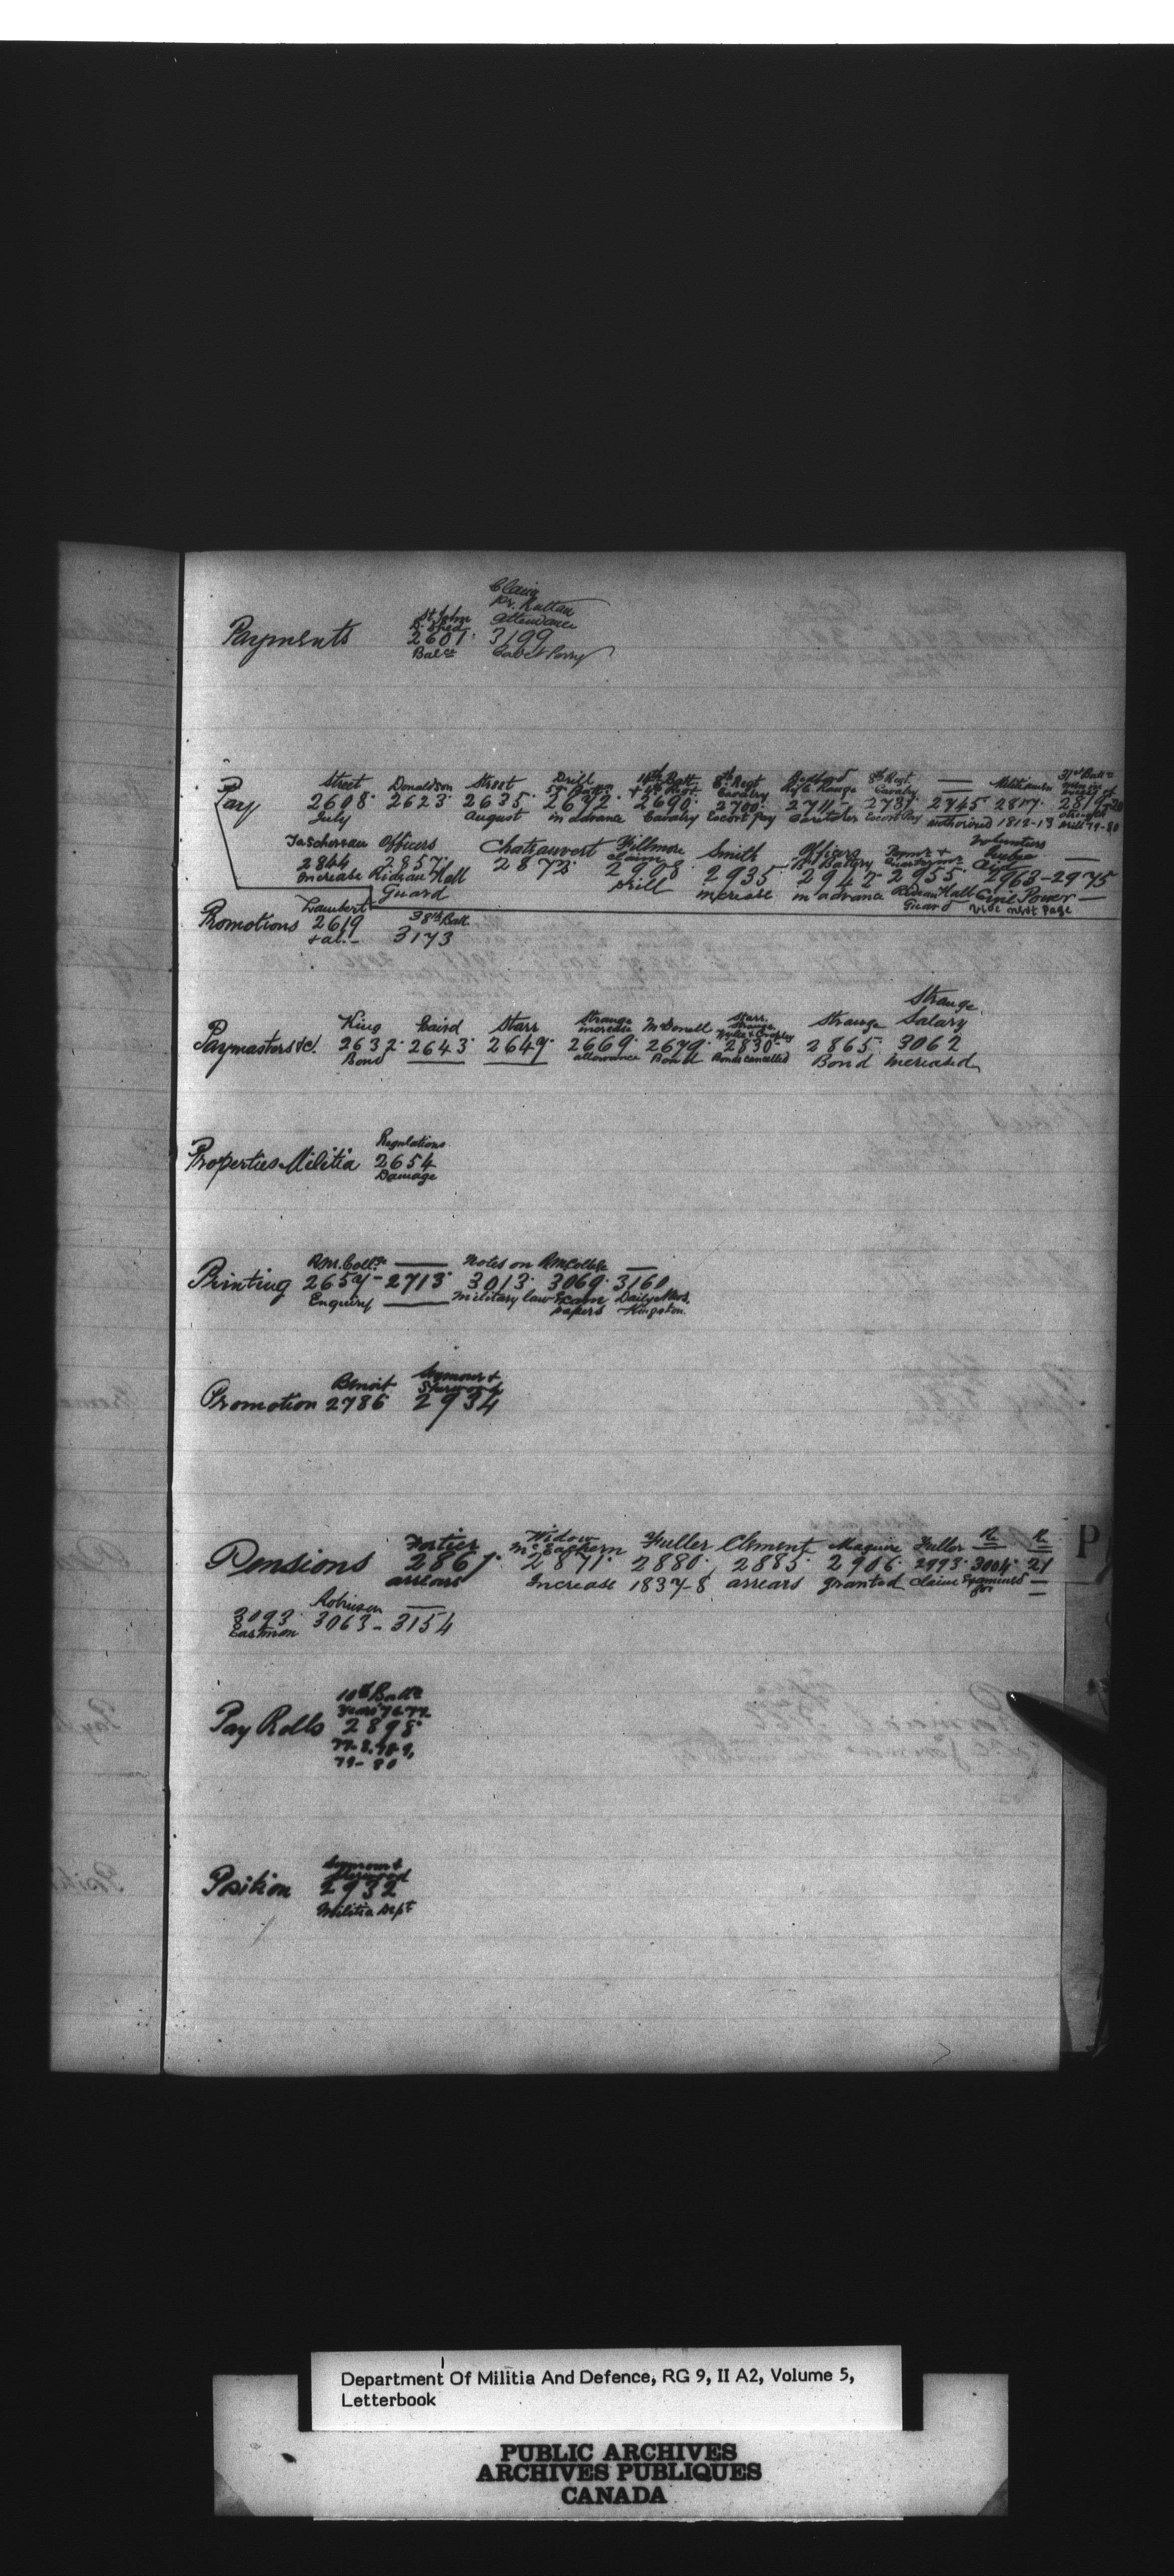 Claim
Dr. Rattan
St. John attendance
D. Shed
Payments 2601. 3199
Balce
Street Donaldson Street Drill 8th Regt 8th Regt —
Cavalry Range Cavalry
Pay 2608. 2623. 2635. 2672. 2690. 2700. 2711- 2731. 2745 2817. 2819-20
July August in advance Cavalry Escort Pay Caretaker Escort Pay authorized 1812-13 drill 79-80
Taschereau Officers Chateauvert Fillmore Smith Officers Volunteers —
claim "B" Battery Quebec
2844 2857. 2872. 2908. 2935. 2942- 2955. 2963-2975
increase Rideau Hall drill increase in advance Rideau Hall Civil Power —
Guard Guard vide next page
Lambert 38th Batt
Promotions 2619 3173
+ al. -
Strange
King Laird Starr Strange McDonell Starr, Strange Strange Salary
increase
Paymasters &c. 2632. 2643. 2649. 2669. 2679. 2830. 2865. 3062
Bond allowance Bond Bonds cancelled Bond increased
Regulations
Properties Militia 2654
Damage
R.M. Collge — Notes on RM College —
Printing 2657- 2713. 3013. 3069. 3160
Enquiry — Military law Exam Daily News.
papers Kingston
Benoit Seymour +
Sherwood
Promotion 2786 2934
Fortier Widow Fuller Clement Maguire Fuller
McEachern
Pensions 2867. 2871. 2880. 2885. 2906. 2993. 3004. 21
arrears Increase 1837-8 arrears granted claim Examined —
for
Robinson —
3093. 3063- 3154
Eastman
10th Battn
Years 76-77.
Pay Rolls 2898.
77-8. 78-9,
79-80
Seymour +
Sherwood
Position 2932
Militia Dept
P
Department Of Militia And Defence, RG 9, II A2, Volume 5,
Letterbook
PUBLIC ARCHIVES
ARCHIVES PUBLIQUES
CANADA